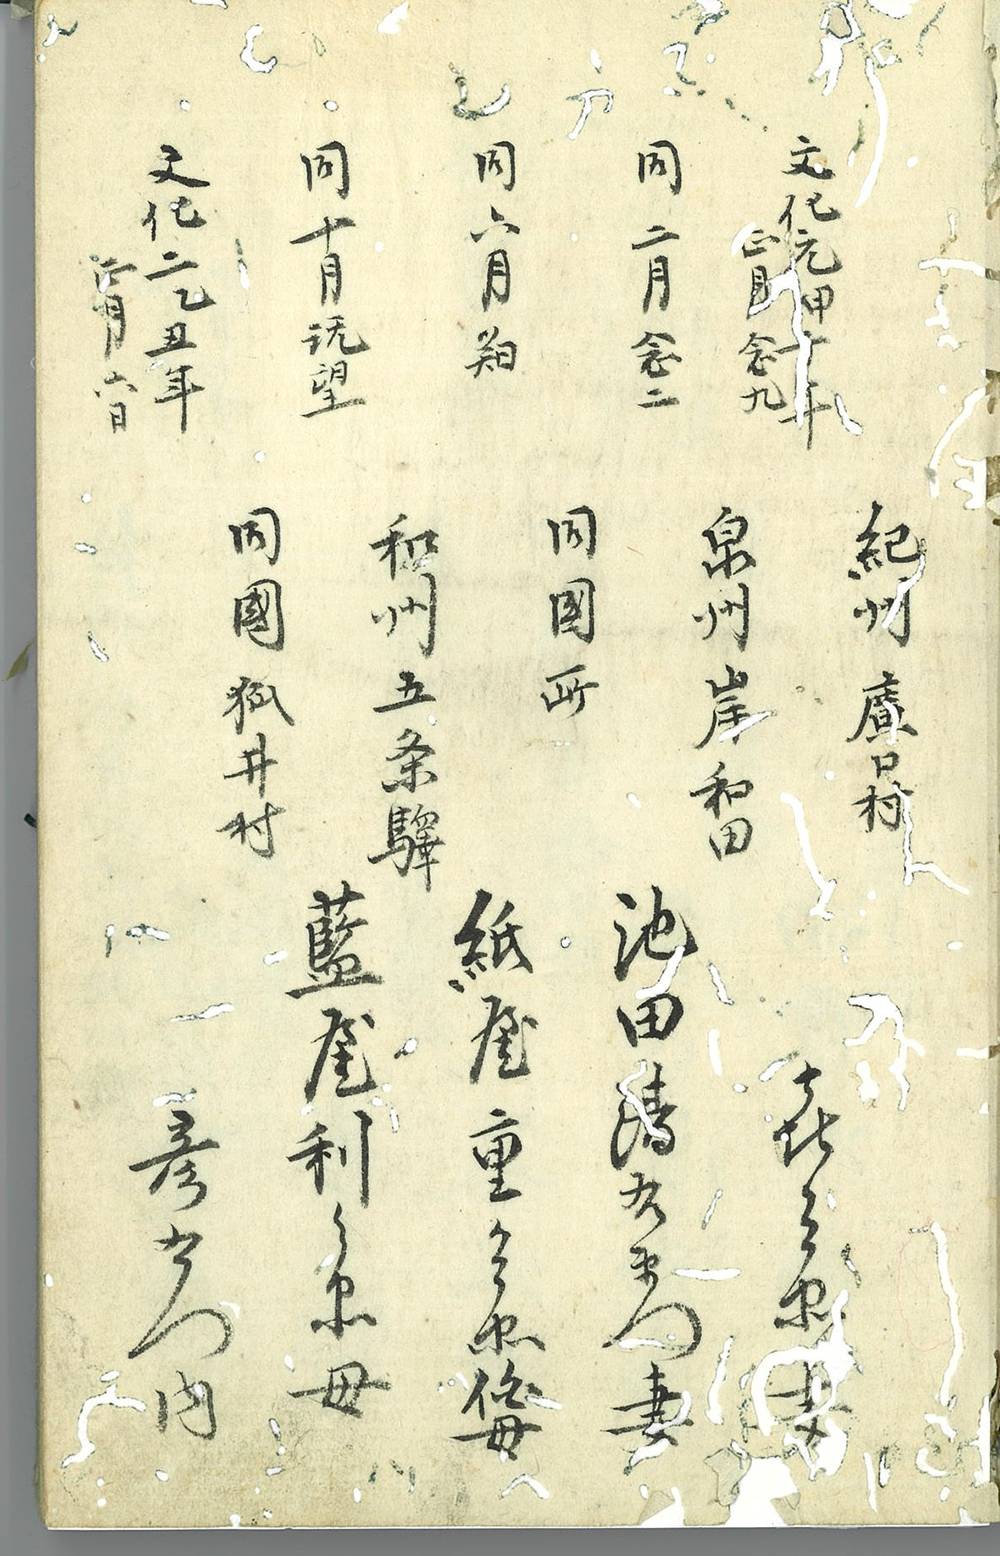 文化元甲子年
正月念九
紀州
村
妻
同二月念二
泉州岸和田
池田清右衛門妻
同六月朔
同国所
紙屋重兵衛母
同十月既望
和州五条驛
藍屋利兵衛母
文化二乙丑年
正月六日
同國狐井村
彦右衛門内